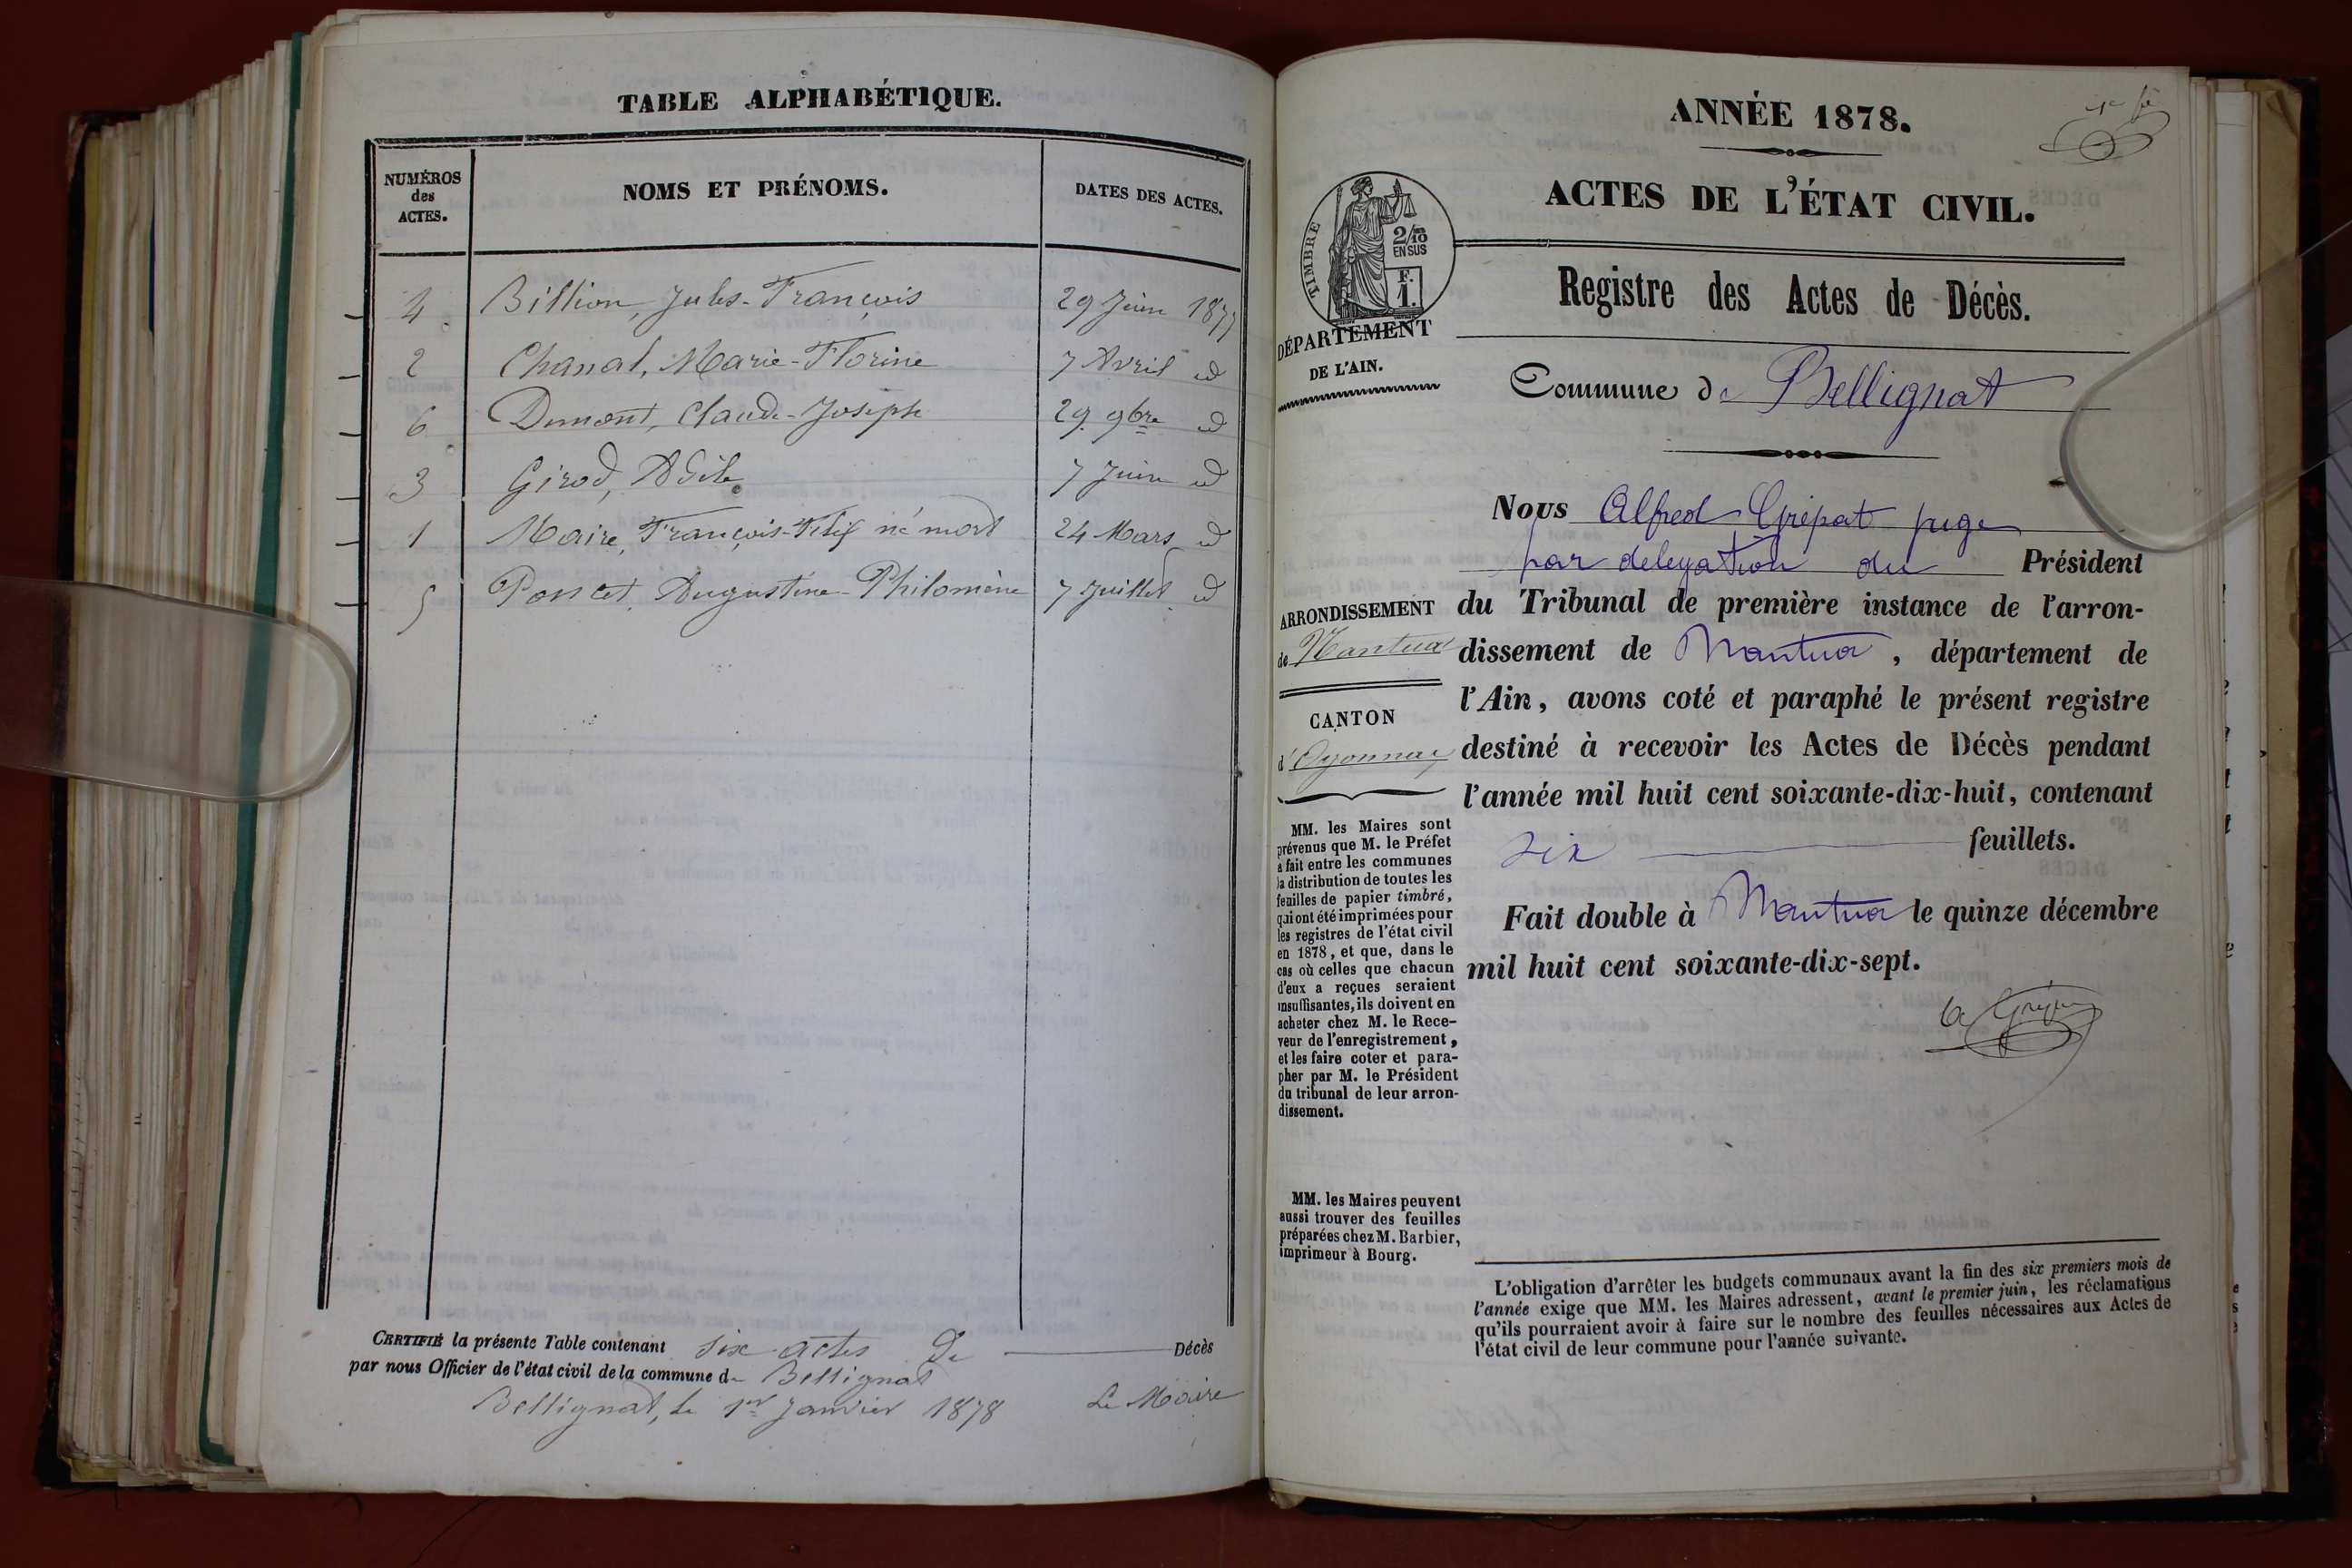 TABLE ALPHABÉTIQUE.
NUMÉROS
des
ACTES.
NOMS ET PRÉNOMS.
DATES DES ACTES.
4 Billion, Jules-François 29 Juin 1877
2 Chanal, Marie-Florine 7 Avril id
6 Dumont, Claude-Joseph 29 9bre id
3 Girod, Adèle 7 Juin id
1 Maire, François-Félix né mort 24 Mars id
5 Poncet, Augustine-Philomène 7 Juillet id
CERTIFIÉ la présente Table contenant six actes de Décès
par nous Officier de l'état civil de la commune de Bellignat
Bellignat, le 1er Janvier 1878
Le Maire
ANNÉE 1878.
ACTES DE L'ÉTAT CIVIL.
TIMBRE
2/10
EN SUS
F.
1.
DÉPARTEMENT
DE L'AIN.
Registre des Actes de Décès.
Commune de Bellignat
ARRONDISSEMENT
de Nantua
CANTON
d'Oyonnax
MM. les Maires sont
prévenus que M. le Préfet
a fait entre les communes
la distribution de toutes les
feuilles de papier timbré,
qui ont été imprimées pour
les registres de l'état civil
en 1878, et que, dans le
cas où celles que chacun
d'eux a reçues seraient
insuffisantes, ils doivent en
acheter chez M. le Rece-
veur de l'enregistrement,
et les faire coter et para-
pher par M. le Président
du tribunal de leur arron-
dissement.
MM. les Maires peuvent
aussi trouver des feuilles
préparées chez M. Barbier,
imprimeur à Bourg.
Nous Alfred Grépat juge
par delegation du Président
du Tribunal de première instance de l'arron-
dissement de Nantua, département de
l'Ain, avons coté et paraphé le présent registre
destiné à recevoir les Actes de Décès pendant
l'année mil huit cent soixante-dix-huit, contenant
six feuillets.
Fait double à Nantua le quinze décembre
mil huit cent soixante-dix-sept.
L'obligation d'arrêter les budgets communaux avant la fin des six premiers mois de
l'année exige que MM. les Maires adressent, avant le premier juin, les réclamations
qu'ils pourraient avoir à faire sur le nombre des feuilles nécessaires aux Actes de
l'état civil de leur commune pour l'année suivante.